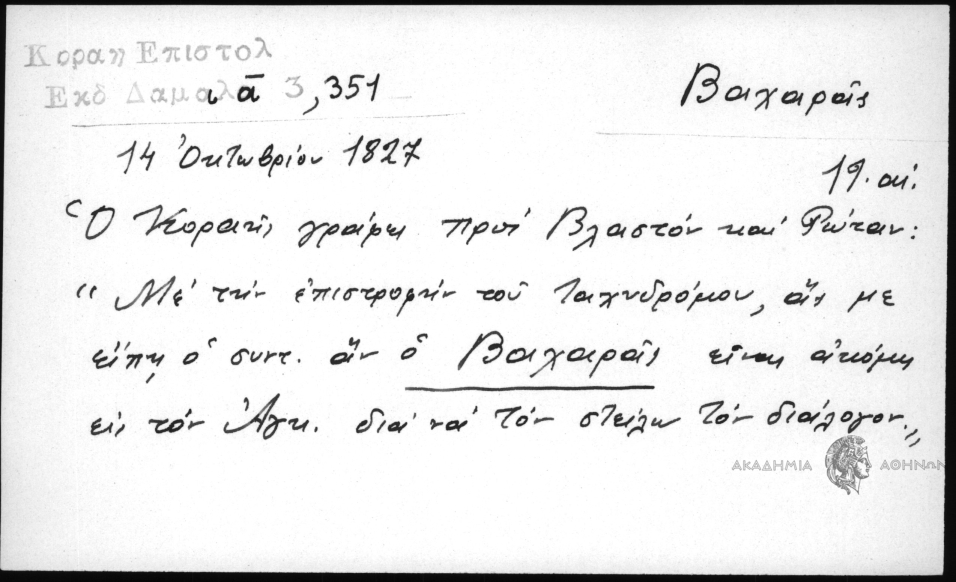 Κοραη Επιστολ
Εκδ Δαμαλ ᾱ 3, 351
Βαχαρᾶς
14 Ὀκτωβρίου 1827
19. αἰ.
Ὁ Κοραῆς γράφει πρὸς Βλαστὸν καὶ Ρώταν:
"Μὲ τὴν ἐπιστροφὴν τοῦ ταχυδρόμου, ἂς με
εἴπῃ ὁ συντ. ἂν ὁ Βαχαρᾶς εἶναι ἀκόμη
εἰς τὸν Ἀγκ. διὰ νὰ τὸν στείλω τὸν διάλογον."
ΑΚΑΔΗΜΙΑ ΑΘΗΝΩΝ